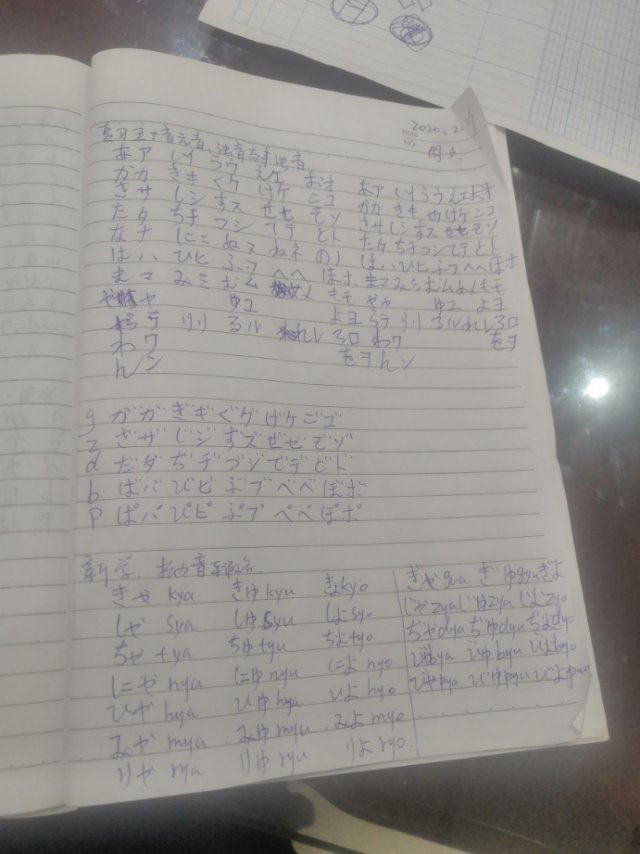 2020.2.
あア いイ うウ えエ おオ あア いイ うウ えエ おオ
かカ きキ くク けケ こコ かカ きキ くク けケ こコ
さサ しシ すス せセ そソ さサ しシ すス せセ そソ
たタ ちチ つツ てテ とト たタ ちチ つツ てテ とト
なナ にニ ぬヌ ねネ のノ
はハ ひヒ ふフ へヘ ほホ はハ ひヒ ふフ へヘ ほホ
まマ みミ むム めメ もモ まマ みミ むム めメ もモ
やヤ ゆユ よヨ やヤ ゆユ よヨ
らラ りリ るル れレ ろロ らラ りリ るル れレ ろロ
わワ をヲ わワ をヲ
んン んン
g がガ ぎギ ぐグ げゲ ごゴ
z ざザ じジ ずズ ぜゼ ぞゾ
d だダ ぢヂ づヅ でデ どド
b ばバ びビ ぶブ べベ ぼボ
p ぱパ ぴピ ぷプ ぺペ ぽポ
新学、拗音假名
きゃ kya きゅ kyu きょ kyo
しゃ sya しゅ syu しょ syo
ちゃ tya ちゅ tyu ちょ tyo
にゃ nya にゅ nyu にょ nyo
ひゃ hya ひゅ hyu ひょ hyo
みゃ mya みゅ myu みょ myo
りゃ rya りゅ ryu りょ ryo
ぎゃ gya ぎゅ gyu ぎょ
じゃ zya じゅ zyu じょ zyo
ぢゃ dya ぢゅ dyu ぢょ dyo
びゃ bya びゅ byu びょ byo
ぴゃ pya ぴゅ pyu ぴょ pyo